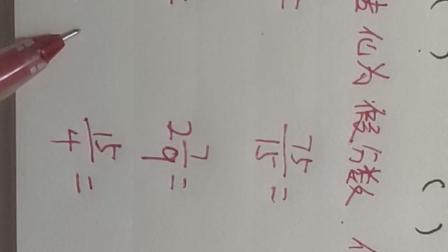 ( ) ( )
化为假分数.
= 75/15 =
= 2 7/9 =
15/4 =